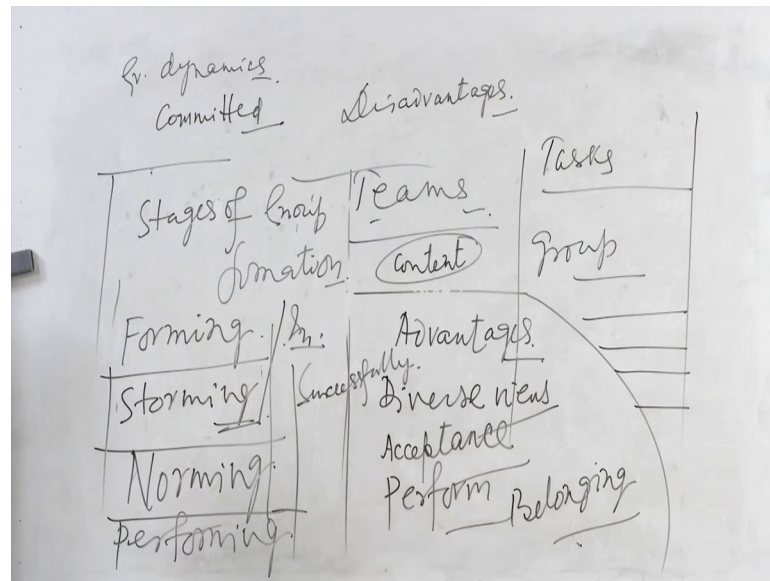 Gr. dynamics.
Committed
Disadvantages.
Stages of Group
formation.
Forming.
Storming
Norming.
Performing.
Successfully.
Teams.
Content
Advantages.
Diverse views
Acceptance
Perform
Belonging
Tasks
Group